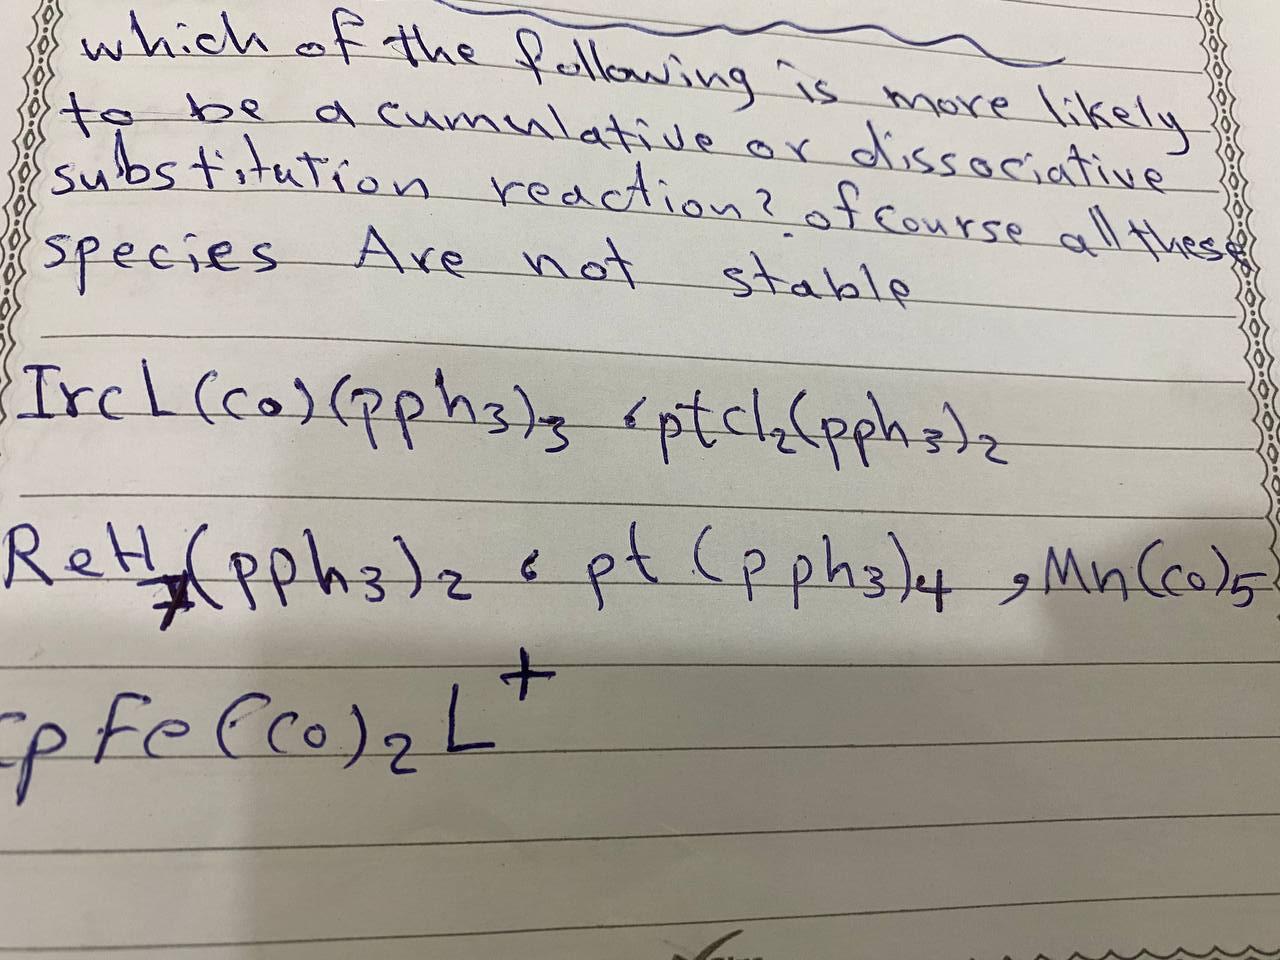 which of the following is more likely
to be a cumulative or dissociative
substitution reaction? of course all these
species Are not stable
IrcL(co)(pph3)3 ‹ptcl2(pph3)2
ReH7(pph3)2 ‹ pt (pph3)4 , Mn(co)5
cpFe(co)2L+